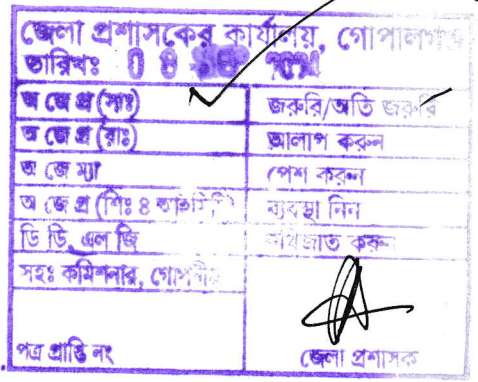 জেলা প্রশাসকের কার্যালয়, গোপালগঞ্জ
তারিখঃ 08
অ জে প্র (সাঃ) জরুরি/অতি জরুরি
অ জে প্র (রাঃ) আলাপ করুন
অ জে ম্যা পেশ করুন
অ জে প্র (শিঃ ও আইসিটি) ব্যবস্থা নিন
ডি ডি, এল জি নথিজাত করুন
সহঃ কমিশনার, গোপনীয়
পত্র প্রাপ্তি নং জেলা প্রশাসক